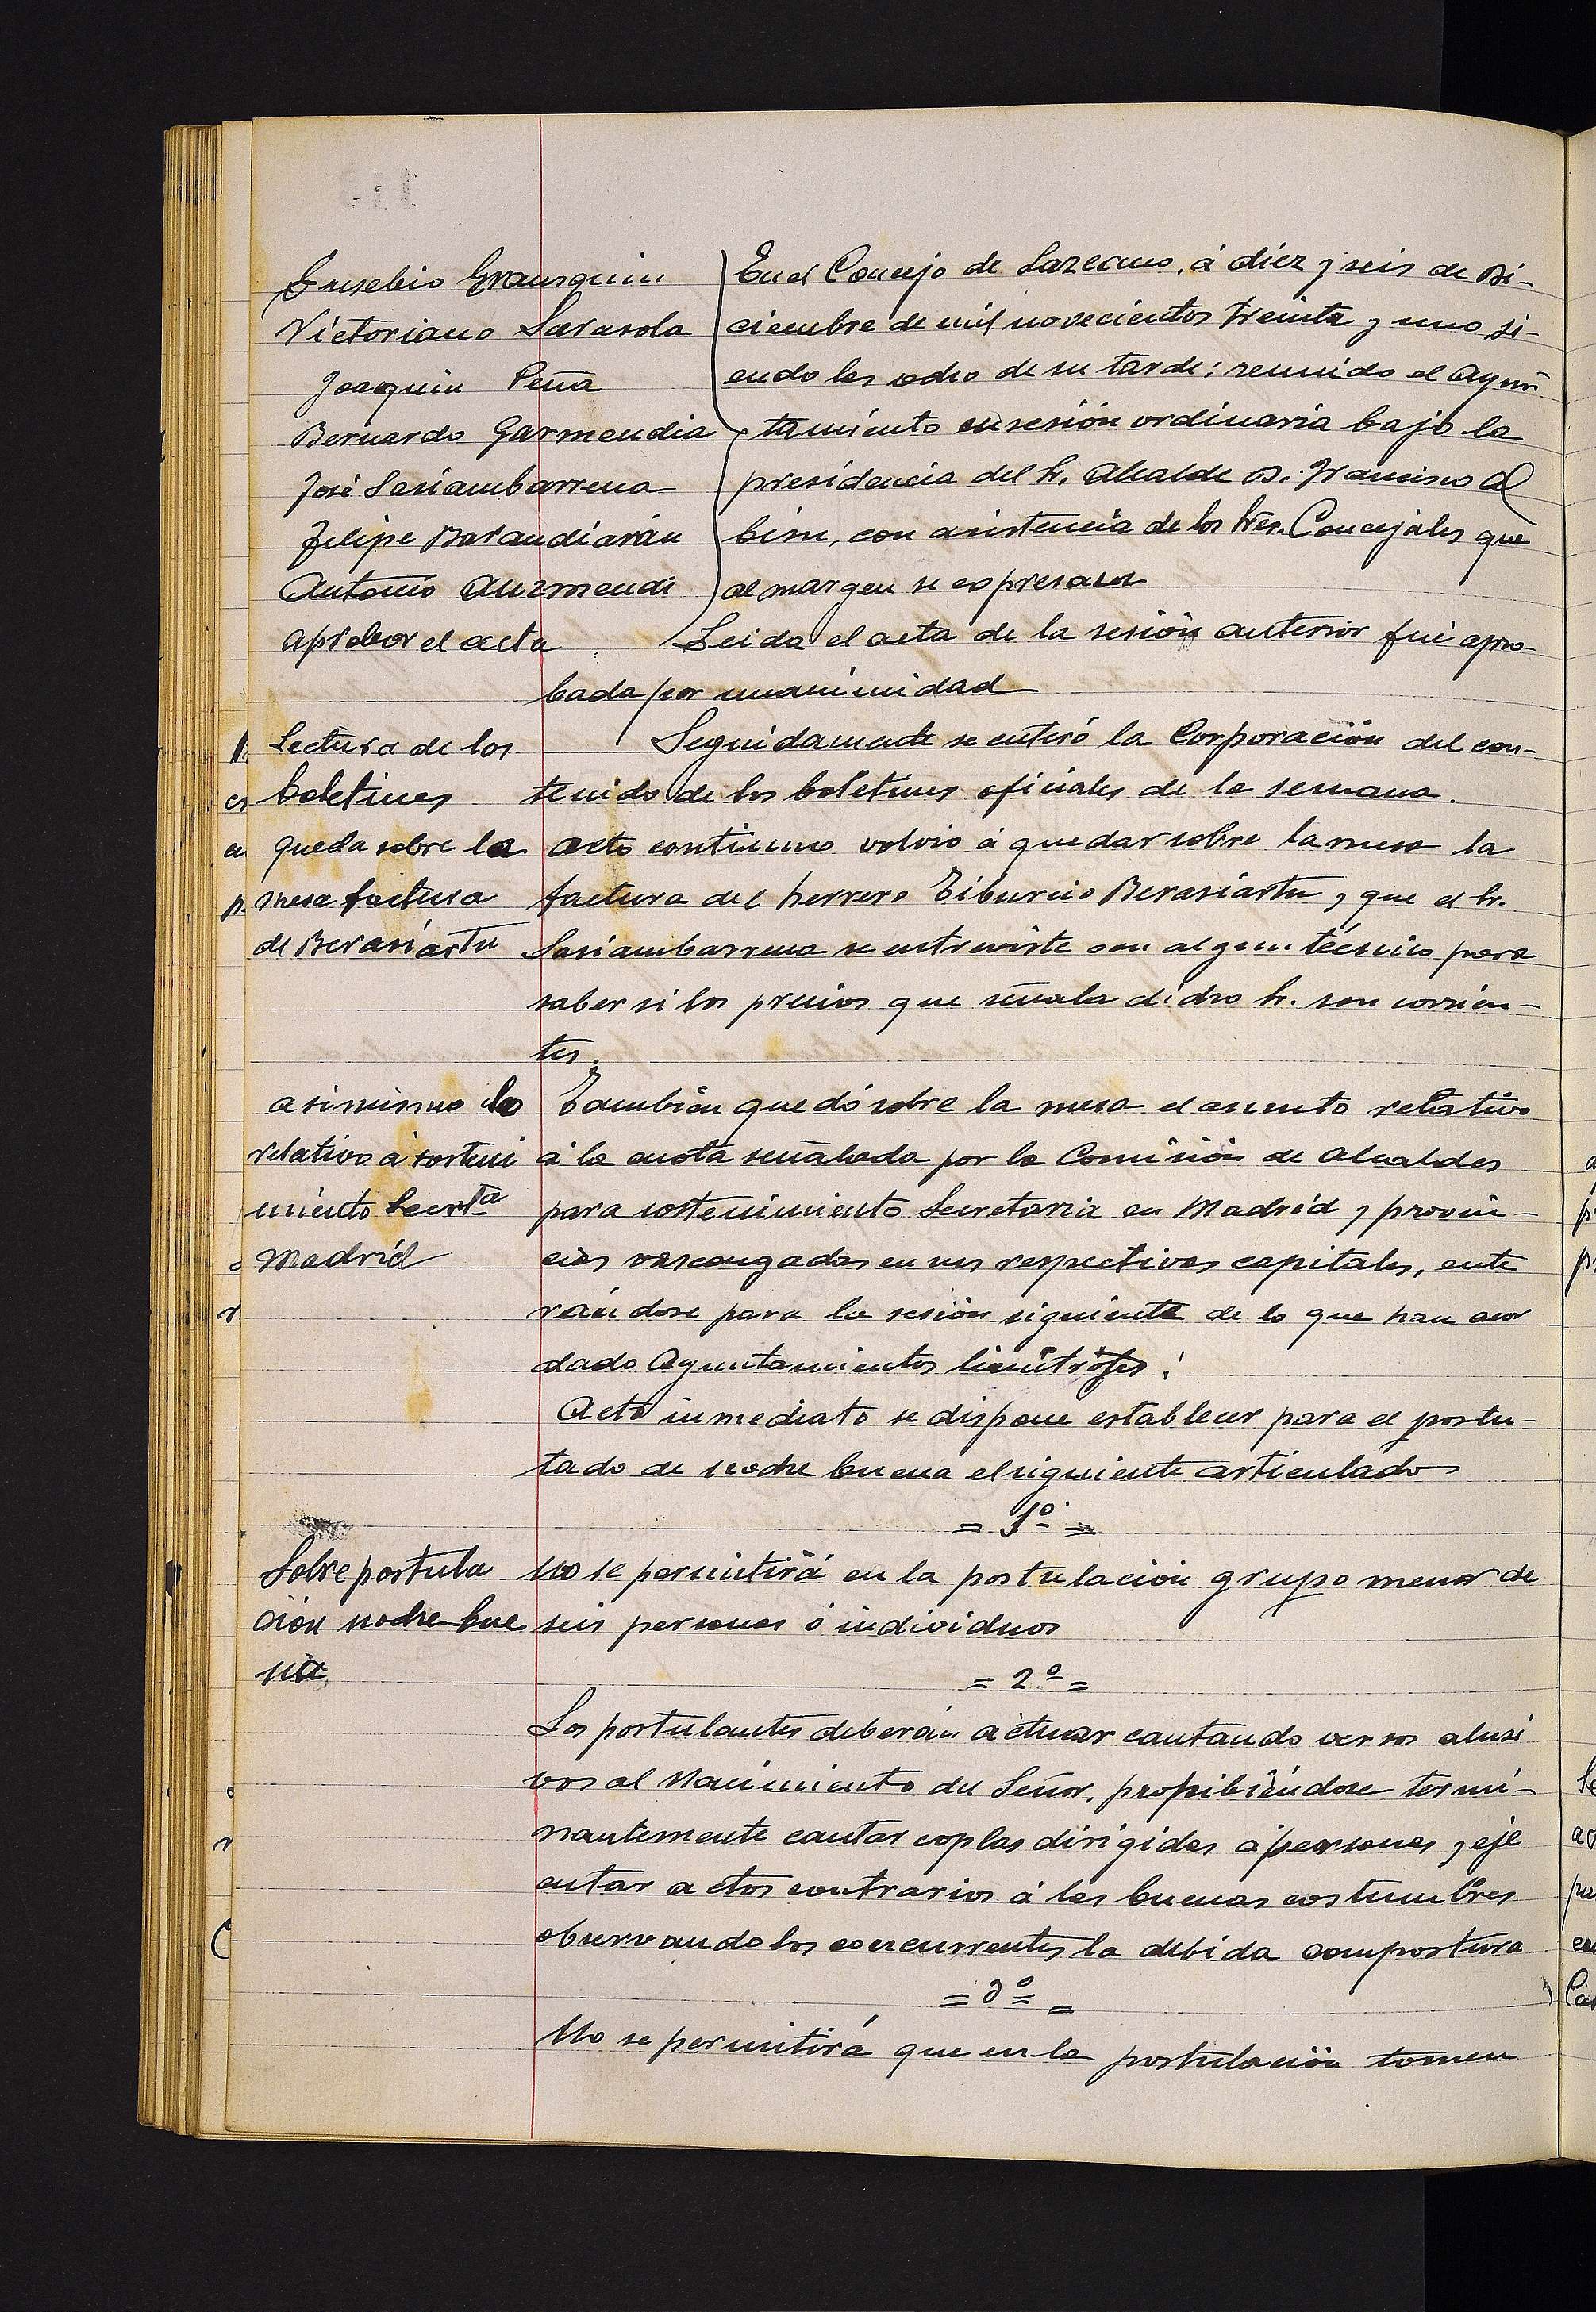 Eusebio
Victoriano Sarasola
Joaquin Peña
Bernardo Garmendia
José Sasiambarrena
Felipe Barandiarán
Antonio Auzmendi
En el Concejo de Lazcano, á diez y seis de Di-
ciembre de mil novecientos treinta y uno si-
endo las ocho de su tarde: reunido el Ayun
tamiento en sesión ordinaria bajo la
presidencia del Sr. Alcalde D. Francisco Al
bisu, con asistencia de los Sres. Concejales que
al margen se expresan
aprobar el acta
Leida el acta de la sesión anterior fué apro-
bada por unanimidad
Lectura de los
boletines
Seguidamente se enteró la Corporación del con-
tenido de los boletines oficiales de la semana.
queda sobre la
mesa factura
de Berasiartu
acto continuo volvio á quedar sobre la mesa la
factura del herrero Tiburcio Berasiartu y que el Sr.
Sasiambarrena se entreviste con algun técnico para
saber si los precios que señala dicho Sr. son corrien-
tes.
asimismo lo
relativo á sosteni
miento Secrta
Madrid
Tambien quedó sobre la mesa el asunto relativo
á la cuota señalada por la Comisión de Alcaldes
para sostenimiento Secretaria en Madrid y provin-
cias vascongadas en sus respectivas capitales, ente
rándose para la sesión siguiente de lo que han acor
dado Ayuntamientos limitrofes.
Acto inmediato se dispone establecer para el postu-
lado de noche buena el siguiente articulado
= 1º =
Sobre postula
ción noche bue
na
No se permitirá en la postulación grupo menor de
seis personas ó individuos
= 2º =
Los postulantes deberán actuar cantando versos alusi
vos al Nacimiento del Señor, prohibiéndose termi-
nantemente cantar coplas dirigidas á personas y eje
cutar actos contrarios á las buenas costumbres
observando los concurrentes la debida compostura
= 3º =
No se permitirá que en la postulación tomen